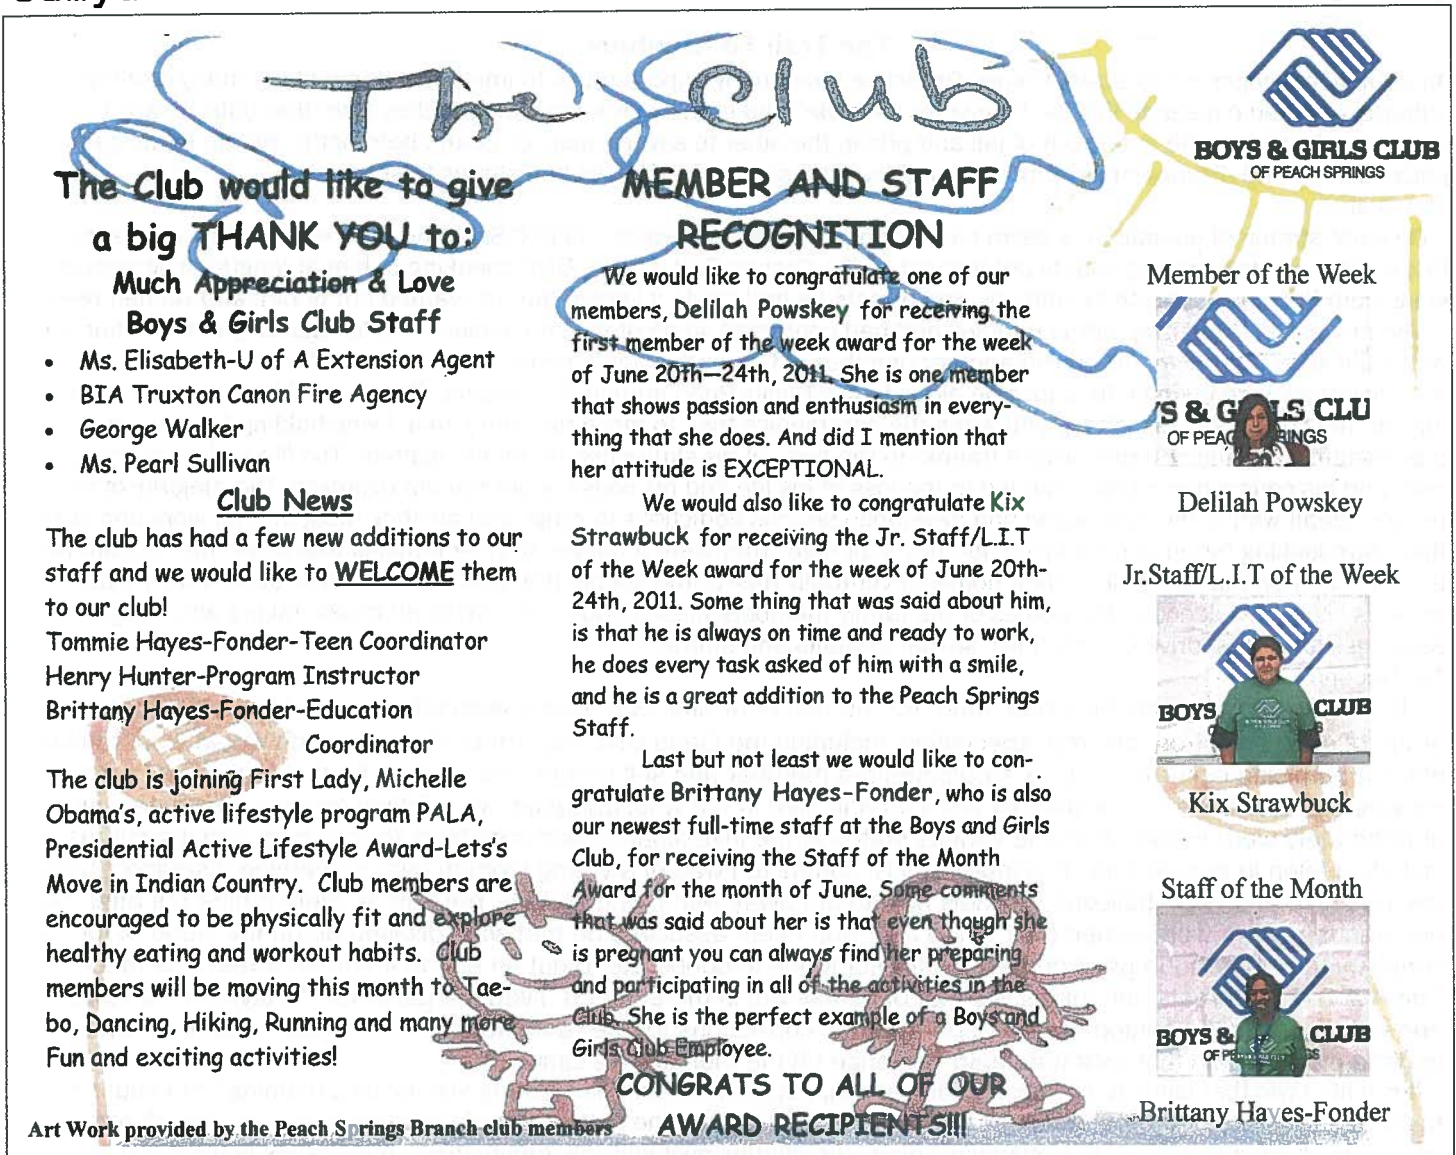 The Club
BOYS & GIRLS CLUB
OF PEACH SPRINGS
The Club would like to give
a big THANK YOU to:
Much Appreciation & Love
Boys & Girls Club Staff
• Ms. Elisabeth-U of A Extension Agent
• BIA Truxton Canon Fire Agency
• George Walker
• Ms. Pearl Sullivan
Club News
The club has had a few new additions to our
staff and we would like to WELCOME them
to our club!
Tommie Hayes-Fonder-Teen Coordinator
Henry Hunter-Program Instructor
Brittany Hayes-Fonder-Education
Coordinator
The club is joining First Lady, Michelle
Obama's, active lifestyle program PALA,
Presidential Active Lifestyle Award-Lets's
Move in Indian Country. Club members are
encouraged to be physically fit and explore
healthy eating and workout habits. Club
members will be moving this month to Tae-
bo, Dancing, Hiking, Running and many more
Fun and exciting activities!
Art Work provided by the Peach Springs Branch club members
MEMBER AND STAFF
RECOGNITION
We would like to congratulate one of our
members, Delilah Powskey for receiving the
first member of the week award for the week
of June 20th—24th, 2011. She is one member
that shows passion and enthusiasm in every-
thing that she does. And did I mention that
her attitude is EXCEPTIONAL.
We would also like to congratulate Kix
Strawbuck for receiving the Jr. Staff/L.I.T
of the Week award for the week of June 20th-
24th, 2011. Some thing that was said about him,
is that he is always on time and ready to work,
he does every task asked of him with a smile,
and he is a great addition to the Peach Springs
Staff.
Last but not least we would like to con-
gratulate Brittany Hayes-Fonder, who is also
our newest full-time staff at the Boys and Girls
Club, for receiving the Staff of the Month
Award for the month of June. Some comments
that was said about her is that even though she
is pregnant you can always find her preparing
and participating in all of the activities in the
Club. She is the perfect example of a Boys and
Girls Club Employee.
CONGRATS TO ALL OF OUR
AWARD RECIPIENTS!!!
Member of the Week
'S & G LS CLU
OF PEAC RINGS
Delilah Powskey
Jr.Staff/L.I.T of the Week
BOYS CLUB
Kix Strawbuck
Staff of the Month
BOYS & CLUB
OF PE GS
Brittany Hayes-Fonder